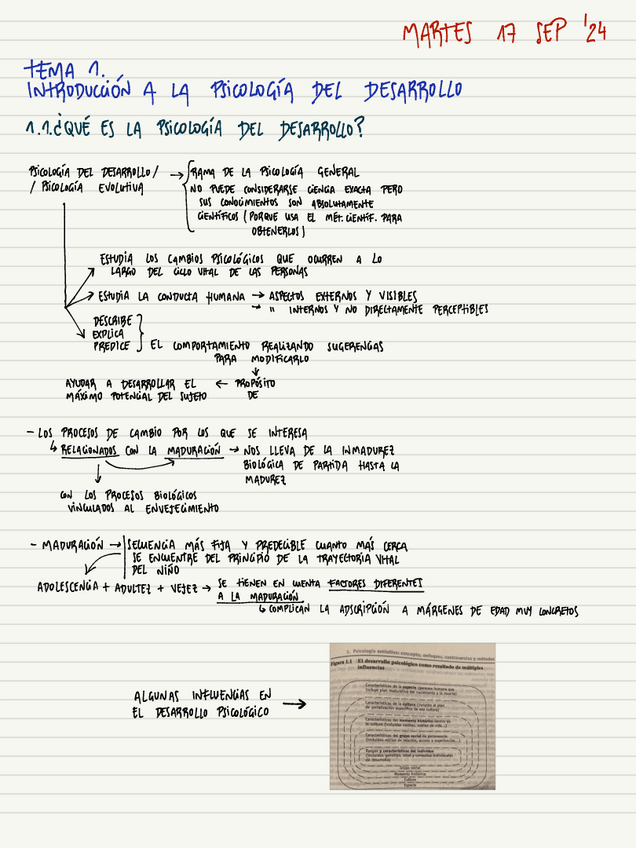 MARTES 17 SEP '24
TEMA 1.
INTRODUCCIÓN A LA PSICOLOGÍA DEL DESARROLLO
1.1. ¿QUÉ ES LA PSICOLOGÍA DEL DESARROLLO?
PSICOLOGÍA DEL DESARROLLO /
/ PSICOLOGÍA EVOLUTIVA
→ RAMA DE LA PSICOLOGÍA GENERAL
NO PUEDE CONSIDERARSE CIENCIA EXACTA PERO
SUS CONOCIMIENTOS SON ABSOLUTAMENTE
CIENTÍFICOS (PORQUE USA EL MÉT. CIENTÍF. PARA
OBTENERLOS)
ESTUDIA LOS CAMBIOS PSICOLÓGICOS QUE OCURREN A LO
LARGO DEL CICLO VITAL DE LAS PERSONAS
ESTUDIA LA CONDUCTA HUMANA → ASPECTOS EXTERNOS Y VISIBLES
→ " INTERNOS Y NO DIRECTAMENTE PERCEPTIBLES
DESCRIBE
EXPLICA
PREDICE
} EL COMPORTAMIENTO REALIZANDO SUGERENCIAS
PARA MODIFICARLO
AYUDAR A DESARROLLAR EL ← PROPÓSITO
MÁXIMO POTENCIAL DEL SUJETO DE
- LOS PROCESOS DE CAMBIO POR LOS QUE SE INTERESA
↳ RELACIONADOS CON LA MADURACIÓN → NOS LLEVA DE LA INMADUREZ
BIOLÓGICA DE PARTIDA HASTA LA
MADUREZ
CON LOS PROCESOS BIOLÓGICOS
VINCULADOS AL ENVEJECIMIENTO
- MADURACIÓN → SECUENCIA MÁS FIJA Y PREDECIBLE CUANTO MÁS CERCA
SE ENCUENTRE DEL PRINCIPIO DE LA TRAYECTORIA VITAL
DEL NIÑO
ADOLESCENCIA + ADULTEZ + VEJEZ → SE TIENEN EN CUENTA FACTORES DIFERENTES
A LA MADURACIÓN
↳ COMPLICAN LA ADSCRIPCIÓN A MÁRGENES DE EDAD MUY CONCRETOS
ALGUNAS INFLUENCIAS EN →
EL DESARROLLO PSICOLÓGICO
1. Psicología evolutiva: concepto, enfoques, controversias y métodos
Figura 1.1 El desarrollo psicológico como resultado de múltiples
influencias
Características de la especie
Características de la cultura
Características del momento histórico
Características del grupo social de pertenencia
Rasgos y características del individuo
Grupo social
Momento histórico
Cultura
Especie